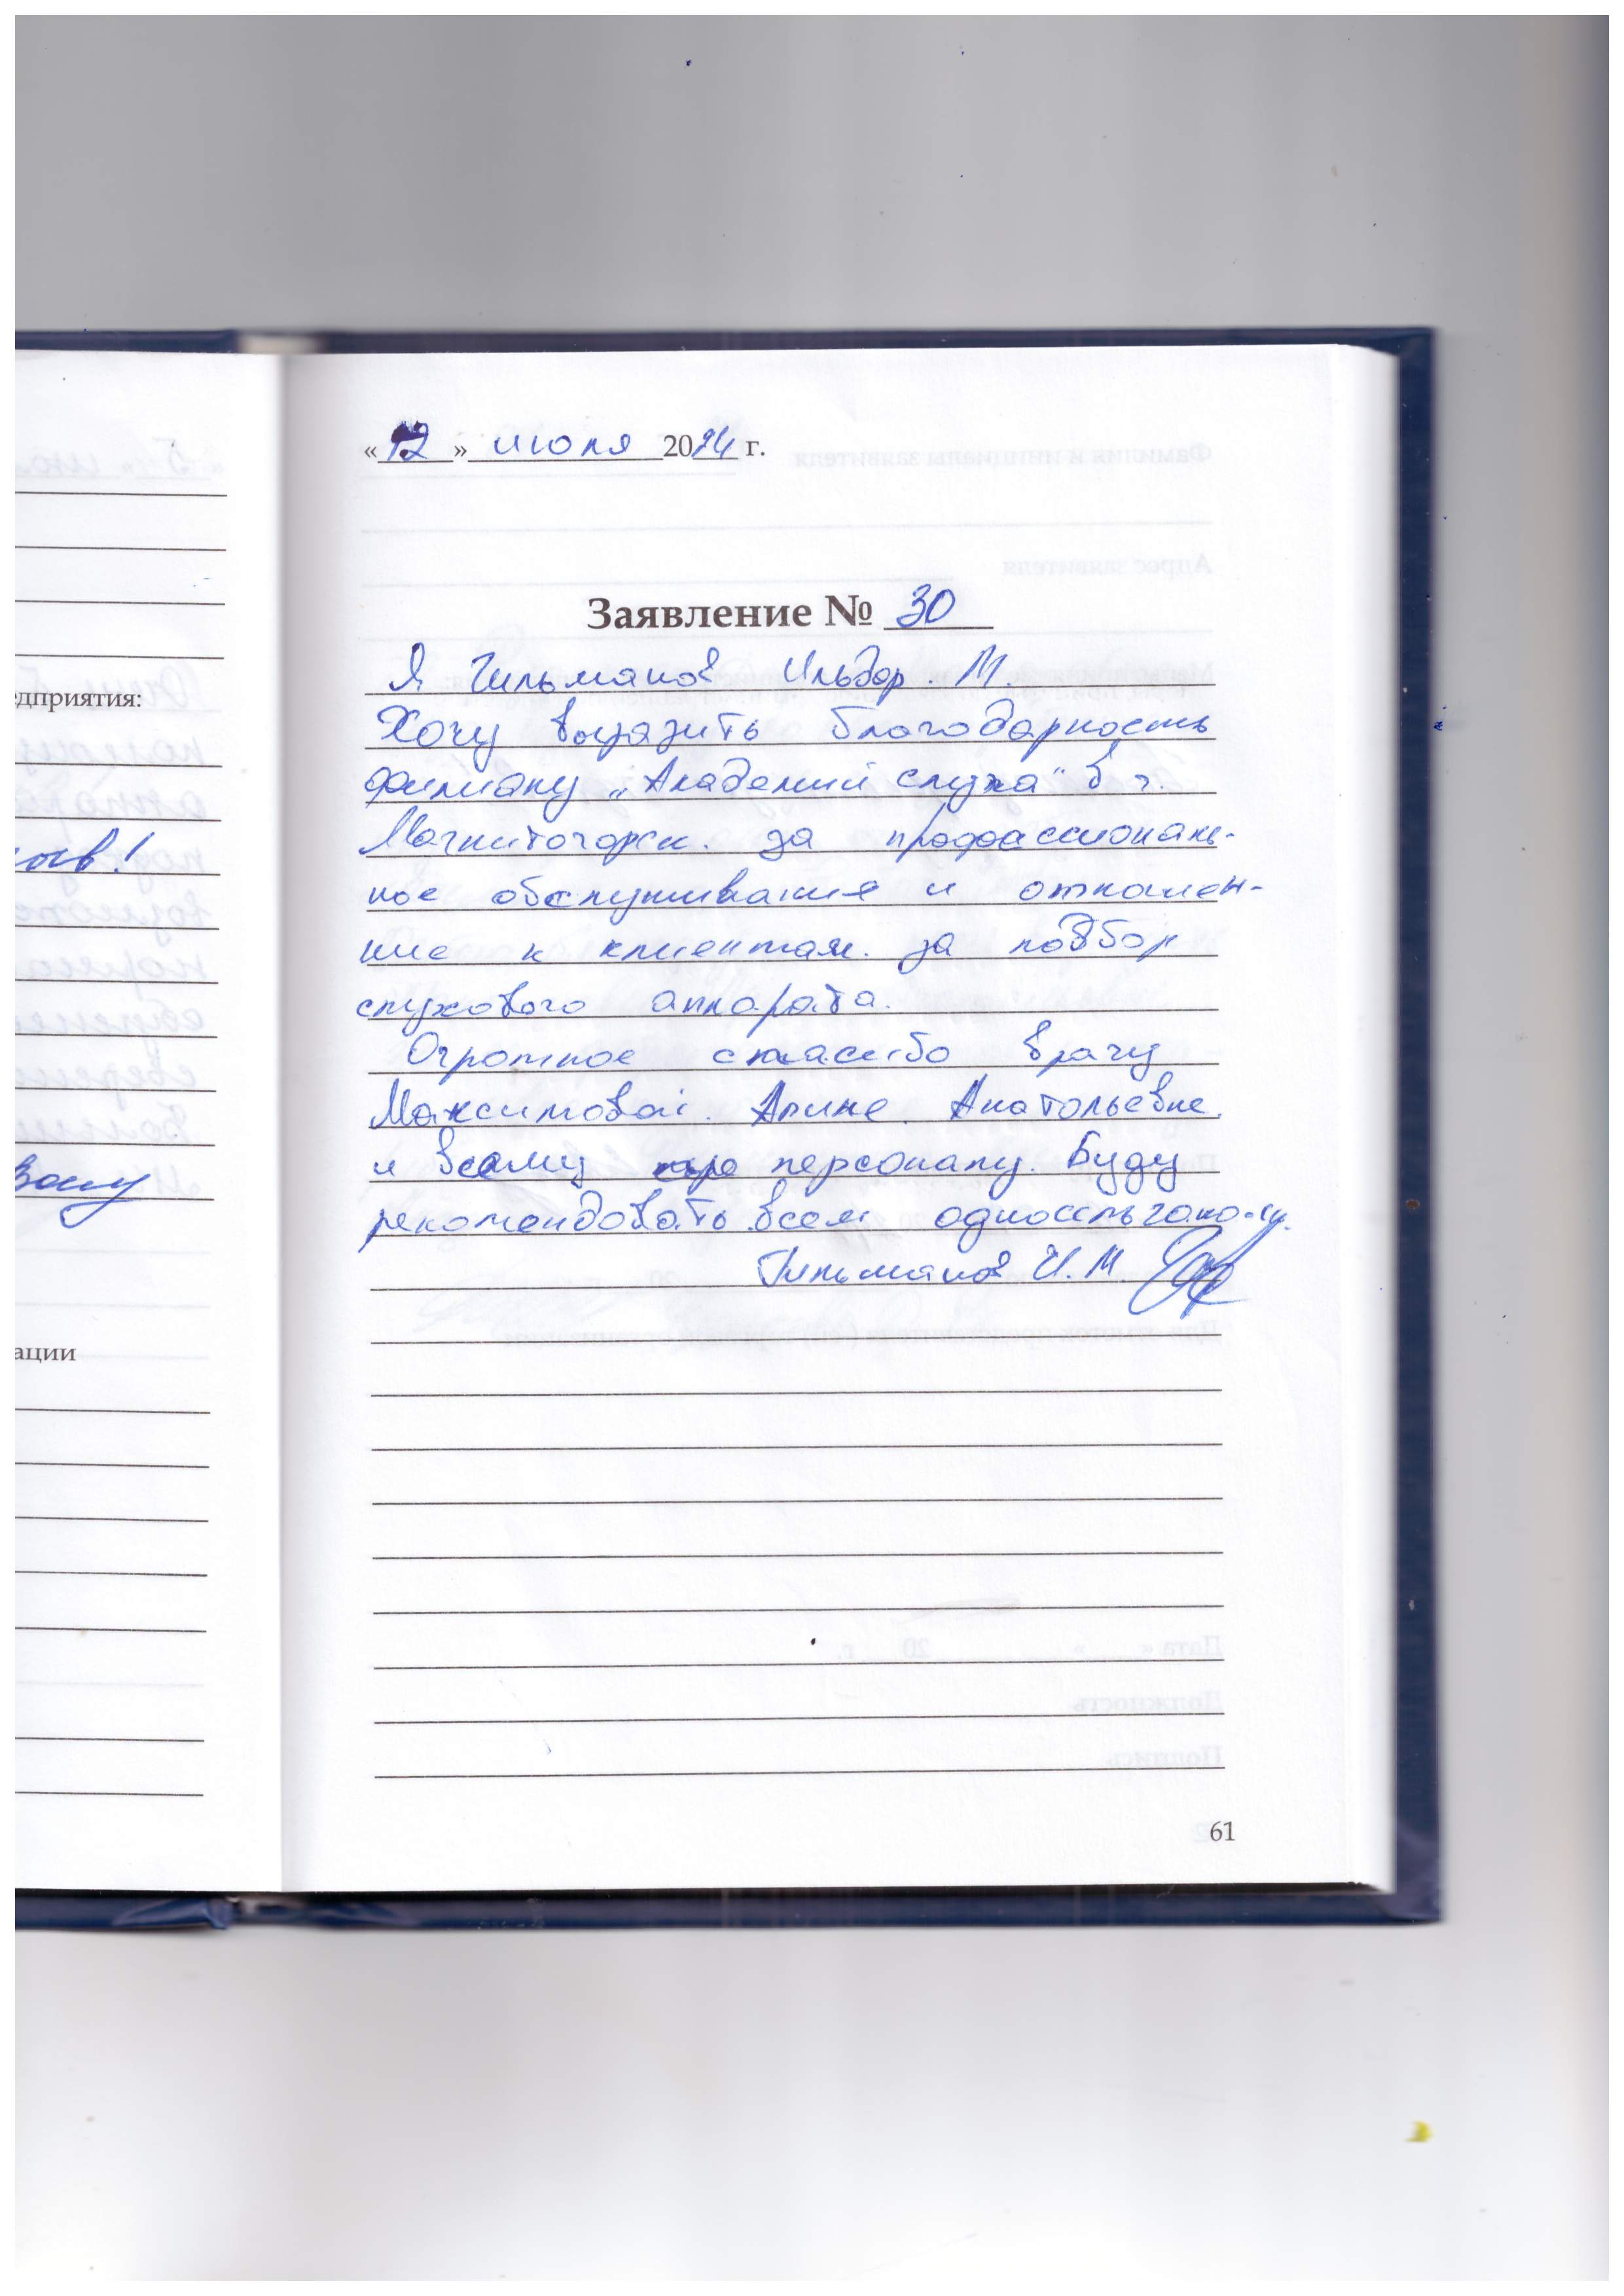 «12» июля 2024 г.
Заявление № 30
Я Гильманов Ильдар М.
Хочу выразить благодарность
филиалу „Академии слуха" в г.
Магнитогорск. за професссиональ-
ное обслуживание и
к клиентам. за подбор
слухового аппарата.
Огромное спасибо врачу
Максимовой. Арине. Анатольевне.
и всему персоналу. Буду
рекомендовать всем
Гильманов И.М.
61
едприятия:
ации